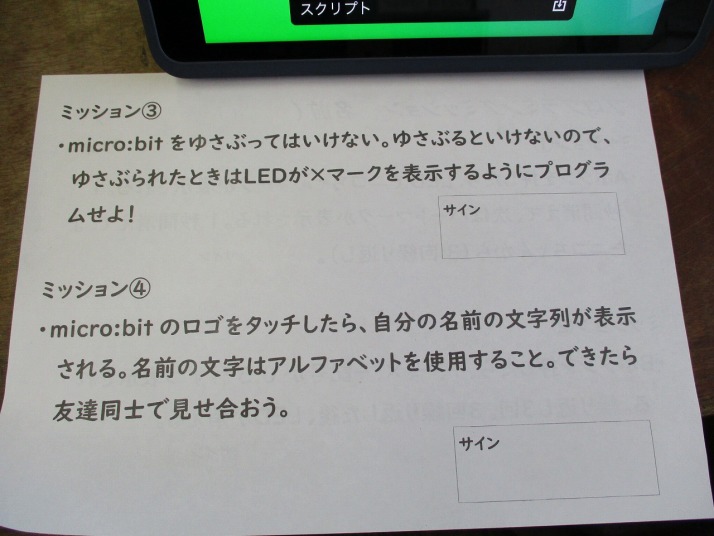 スクリプト
ミッション③
・micro:bit をゆさぶってはいけない。ゆさぶるといけないので、
ゆさぶられたときはLEDが×マークを表示するようにプログラ
ムせよ！
サイン
ミッション④
・micro:bit のロゴをタッチしたら、自分の名前の文字列が表示
される。名前の文字はアルファベットを使用すること。できたら
友達同士で見せ合おう。
サイン